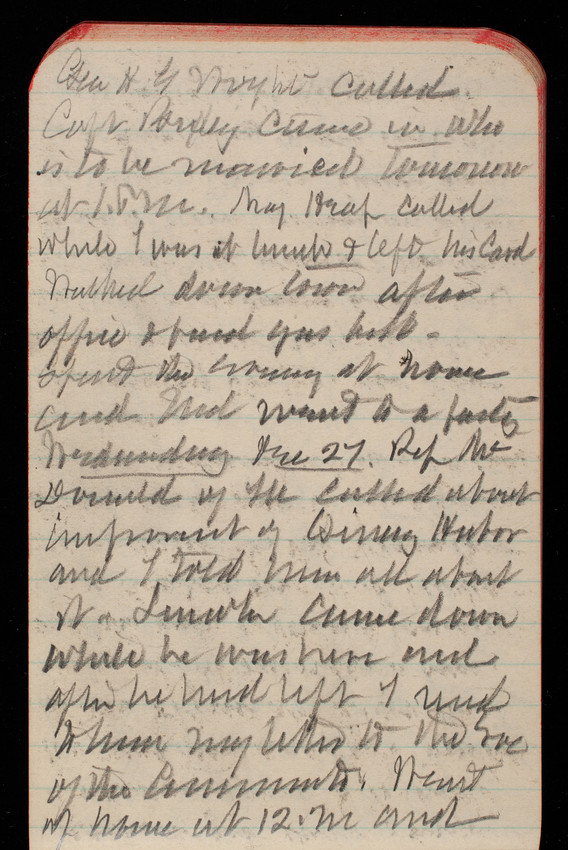 Gen H G Wright called.
Capt Poxley came in who
is to be married tomorrow
at 1 P.M. Maj Heap called
while I was at lunch & left his Card
Walked down town after
office & paid gas bill -
spent the evening at home
and went to a party
Wednesday Dec 27. Rep Mc
Donald of called about
improvmt of Harbor
and I told him all about
it. Lincoln came down
while he was here and
after he had left I read
to him my letter to the Soc
of the Cincinnati. Went
home at 12. M and